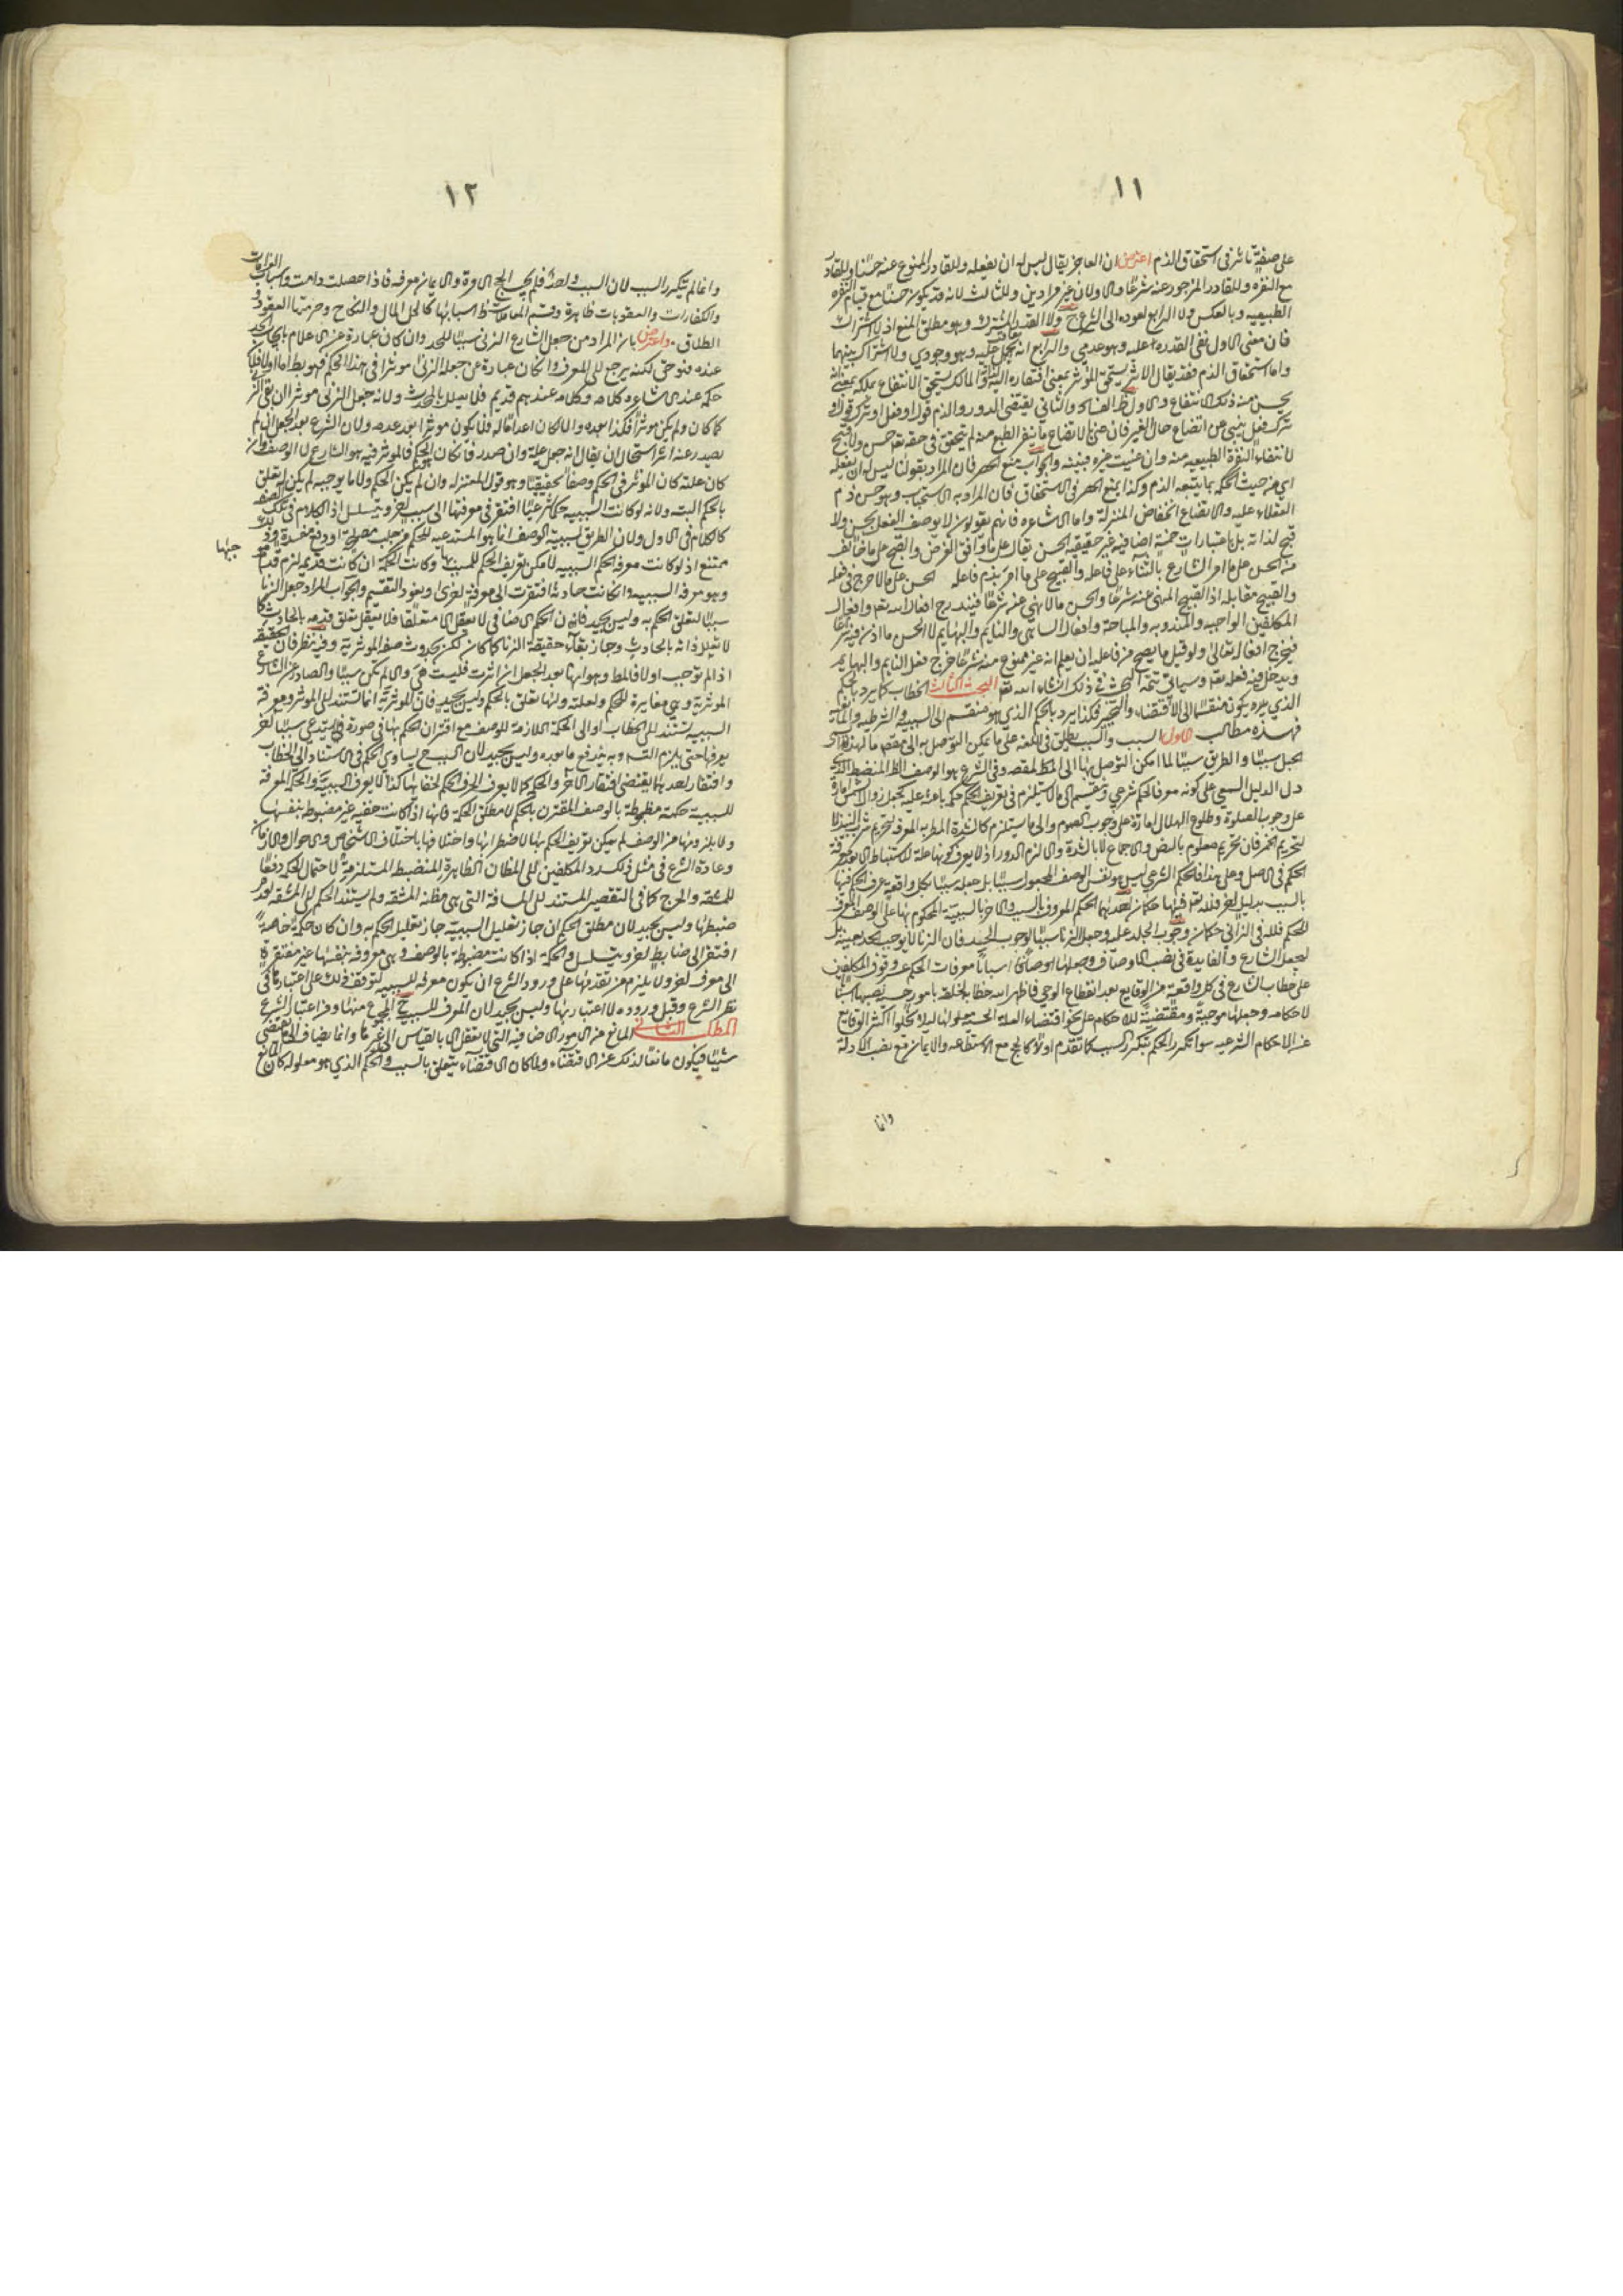 ١١
على صفة تاثر في استحقاق الذم اعترض ان العاجز يقال ليس له ان يفعله وللقادر الممنوع عنه حسا وللقادر
مع النفرة وللقادر المزجور عنه شرعا والاولان غير مرادين وللثالث لانه قد يكون حسنا مع قيام النفرة
الطبيعيه وبالعكس ولا الرابع لعوده الى الشرع ولا القدر المشترك وهو مطلق المنع اذ لا اشتراك
فان معنى الاول نفي القدره عليه وهو عدمي والرابع انه وهو وجودي ولا اشتراك بينهما
واما استحقاق الذم فقد يقال الاثر يستحق المؤثر بمعنى افتقاره اليه والمالك يستحق الانتفاع بملكه بمعنى انه
يحسن منه ذلك الانتفاع والاول ظ الفساد والثاني يقتضي الدور والذم قول او فعل او ترك قول او
ترك فعل ينبي عن اتضاع حال الغير فان عنى بالاتضاع ما ينفر الطبع عنه لم يتحقق في حقه تعا حسن ولا قبح
لانتفاء النفرة الطبيعيه عنه وان عنيت غيره فبينه والجواب منع الحصر فان المراد بقولنا ليس له ان يفعله
اي من حيث الحكمه بما يتبعه الذم وكذا يمنع الحصر في الاستحقاق فان المراد به الاستيجاب وهو حسن ذم
العقلاء عليه والاتضاع انخفاض المنزلة واما الاشاعره فانهم يقولون لا يوصف الفعل بحسن ولا
قبح لذاته بل باعتبارات اضافيه غير حقيقيه الحسن يقال على ما وافق الغرض والقبح على ما خالف
الحسن على ما امر الشارع بالثناء على فاعله والقبيح على ما امر بذم فاعله الحسن على ما لا حرج في فعله
والقبيح مقابله اذ القبيح المنهي عنه شرعا والحسن ما لا نهي عنه شرعا فيندرج افعال الله تعا وافعال
المكلفين الواجبه والمندوبه والمباحة وافعال الساهي والنايم والبهايم لا الحسن ما اذن فيه شرعا
فيخرج افعاله تعالى ولو قيل ما يصح من فاعله ان يعلم انه غير ممنوع منه شرعا خرج فعل النايم والبهايم
ويدخل فيه فعله تعا وسياتي تتمة البحث في ذلك ان شاء الله تعا البحث الثالث الخطاب كما يرد بالحكم
الذي يكون منقسما الى الاقتضاء والتخيير فكذا يرد بالحكم الذي هو منقسم الى السببيه والشرطيه والمانعيه
فهذه مطالب الاول السبب والسبب يطلق في اللغه على ما يمكن التوصل به الى مقصد ما لهذا سمى
الحبل سببا والطريق سببا لما امكن التوصل بها الى المقصود وفي الشرع هو الوصف الظ المنضبط الذي
دل الدليل السمعي على كونه معرفا لحكم شرعي وينقسم الى ما لا يستلزم في تعريف الحكم حكمة باعثة عليه كجعل زوال الشمس امارة
على وجوب الصلوة وطلوع الهلال امارة على وجوب الصوم والى ما يستلزم كالشدة المطربه المعرفه لتحريم شرب النبيذ لا
لتحريم الخمر فان تحريمه معلوم بالنص والاجماع لا بالشدة والا لزم الدور اذ لا يعرف كونها علة الا بالاستنباط الا بعد معرفة
الحكم في الاصل وعلى هذا فالحكم الشرعي ليس هو نفس الوصف المحكوم سببا بل جعله سببا فكل واقعة عرف الحكم فيها
بالسبب بدليل اخر فلله تعا فيها حكمان احدهما الحكم المعروف بالسبب والاخر بالسببية المحكوم بها على الوصف المعرف
للحكم فلله في الزاني حكمان وجوب الجلد عليه وجعل الزنا سببا لوجوب الحد فان الزنا لا يوجب الحد بعينه بل
لجعل الشارع والفايدة في نصب الاوصاف اسبابا معرفات الحكم عسر وقوف المكلفين
على خطاب الشارع في كل واقعة من الوقايع بعد انقطاع الوحي فاظهر الله خطابه لخلقه بامور نصبها اسبابا
لاحكامه وجعلها موجبة ومقتضية للاحكام على نحو اقتضاء العلة الحسية معلولها ليلا تخلو اكثر الوقايع
عن الاحكام الشرعيه سوا تكرر الحكم بتكرر السبب كما تقدم اولا كالحج مع الاستطاعه والايمان مع نصب الادلة
وانما
١٢
وانما لم يتكرر السبب لان السبب واحد فلم يجب الحج الا مرة والايمان معرفه فاذا حصلت دامت واسباب الغرامات
والكفارات والعقوبات ظاهرة وقسم المعاملات ظ اسبابها كالحل المال والنكاح وحرمتها العقود و
الطلاق واعترض بان المراد من جعل الشارع الزنى سببا للحد وان كان عبارة عن الاعلام بايجاب الحد
عنده فهو حق لكنه يرجع الى المعرف وان كان عبارة عن جعله الزنى موثرا في هذا الحكم فهو بط اما اولا فلان
حكمه عند الاشاعره كلامه وكلامه عندهم قديم فلا يعلل بالمحدث ولانه جعل الزنى موثرا ان بقي الزنا
كما كان ولم يكن موثرا فكذا بعده والا لكان اعداما له فلا يكون موثرا بعد عدمه ولان الشرع بعد الجعل ان لم
يصدر عنه اثر استحال ان يقال انه جعل علة وان صدر فان كان الحكم فالموثر فيه هو الشارع لا الوصف وان
كان علته كان الموثر في الحكم وصفا حقيقيا وهو قول المعتزله وان لم يكن الحكم ولا ما يوجبه لم يكن له تعلق
بالحكم البته ولانه لو كانت السببيه حكما شرعيا افتقر في معرفتها الى سبب اخر ويتسلسل اذ الكلام في تلك الصفه
كالكلام في الاول ولان الطريق لسببية الوصف انما هو المستدعيه للحكم من جلب مصلحة او دفع مفسدة وذلك
ممتنع اذ لو كانت معرفه الحكم السببيه لامكن تعريف الحكم للمسبب بها وكانت الحكمة ان كانت قديمه لزم قدم جبها
وهو معرفه السببيه وان كانت حادثه افتقرت الى معرفه اخرى ويعود التقسيم والجواب المراد جعل الزنا
سببا لتعلق الحكم به وليس بجيد فان الحكم اضافي لا يعقل الا متعلقا فلا يعقل تعلق قدمه بالحادث كما
لا تعلل ذاته بالحادث وجاز بقاء حقيقة الزنا كما كان لكن بحدوث صفه الموثرية وفيه نظر فان الحقيقه
اذ لم توجب اولا فالمط وهو انها بعد الجعل ان اثرت فليست هي والا لم تكن سببا والصادر عن الشارع
الموثرية وهي مغايرة للحكم ولعلته ولها تعلق بالحكم وليس بجيد فان الموثرية انما تستند الى الموثر ومعرفة
السببيه تستند الى الخطاب او الى الحكمة اللازمة للوصف مع اقتران الحكم بها في صورة فلا يستدعي سببا اخر
يعرفها حتى يلزم التس وبه يندفع ما بعده وليس بجيد لان السبب ح يساوي الحكم في الاستناد الى الخطاب
وافتقار احدهما يقتضي افتقار الآخر والحكمة كما لا يعرف الحكم لخفائها كذا لا يعرف السببية والحكمة المعرفه
للسببية حكمة مضبوطة بالوصف المقترن بالحكم لا مطلق الحكمة فانها اذا كانت خفيه غير مضبوطة بنفسها
ولا بملزومها من الوصف لم يمكن تعريف الحكم بها لاضطرابها واختلافها باختلاف الاشخاص والاحوال والازمان
وعادة الشرع في مثل ذلك رد المكلفين الى المظان الظاهرة المنضبطة المستلزمة لاحتمال الحكمة دفعا
للمشقه والحرج كما في التقصير المستند الى المسافة التي هي مظنة المشقه ولم يستند الحكم الى المشقه لعدم
ضبطها وليس بجيد لان مطلق الحكم ان جاز تعليل السببية جاز تعليل الحكم به وان كان حكمة خاصة
افتقر الى ضابط اخر ويتسلسل والحكمة اذا كانت مضبوطة بالوصف فهي معروفه بنفسها غير مفتقرة
الى معرف اخر ولا يلزم من تقدمها على ورود الشرع ان يكون معرفه للسببيه لتوقف ذلك على اعتبارها في
نظر الشرع وقبل وروده لا اعتبار بها وليس بجيد لان المعرف للسببيه ح المجموع منها ومن اعتبار الشرع
المطلب الثاني المانع من الامور الاضافيه التي لا تعقل الا بالقياس الى غيرها وانما يضاف الى ما يقتضي
شيئا فيكون مانعا لذلك عن الاقتضاء ولما كان الاقتضاء يتعلق بالسبب والحكم الذي هو معلوله كان المانع